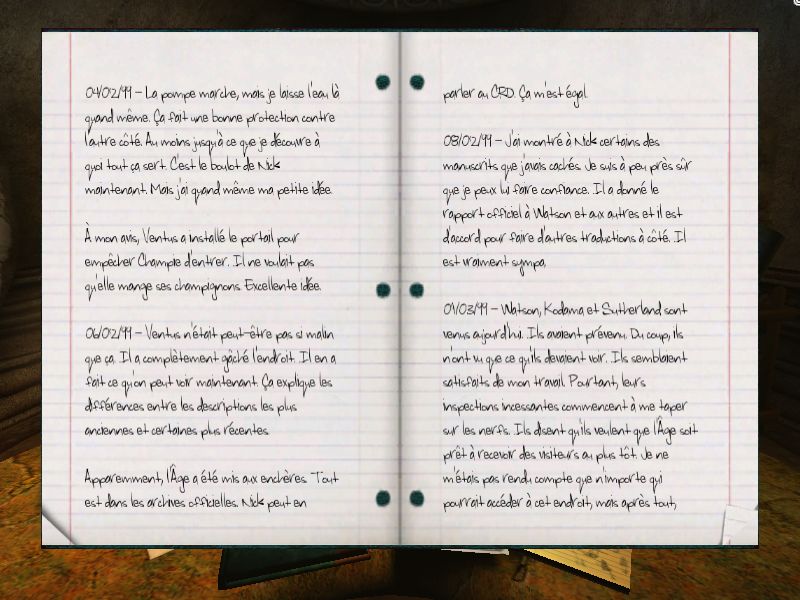 04/02/99 – La pompe marche, mais je laisse l'eau là
quand même. Ça fait une bonne protection contre
l'autre côté. Au moins jusqu'à ce que je découvre à
quoi tout ça sert. C'est le boulot de Nick
maintenant. Mais j'ai quand même ma petite idée.
À mon avis, Ventus a installé le portail pour
empêcher Champie d'entrer. Il ne voulait pas
qu'elle mange ses champignons. Excellente idée.
06/02/99 – Ventus n'était peut-être pas si malin
que ça. Il a complètement gâché l'endroit. Il en a
fait ce qu'on peut voir maintenant. Ça explique les
différences entre les descriptions les plus
anciennes et certaines plus récentes.
Apparemment, l'Âge a été mis aux enchères. Tout
est dans les archives officielles. Nick peut en
parler au CRD. Ça m'est égal.
08/02/99 – J'ai montré à Nick certains des
manuscrits que j'avais cachés. Je suis à peu près sûr
que je peux lui faire confiance. Il a donné le
rapport officiel à Watson et aux autres et il est
d'accord pour faire d'autres traductions à côté. Il
est vraiment sympa.
01/03/99 – Watson, Kodama et Sutherland sont
venus aujourd'hui. Ils avaient prévenu. Du coup, ils
n'ont vu que ce qu'ils devaient voir. Ils semblaient
satisfaits de mon travail. Pourtant, leurs
inspections incessantes commencent à me taper
sur les nerfs. Ils disent qu'ils veulent que l'Âge soit
prêt à recevoir des visiteurs au plus tôt. Je ne
m'étais pas rendu compte que n'importe qui
pourrait accéder à cet endroit, mais après tout,